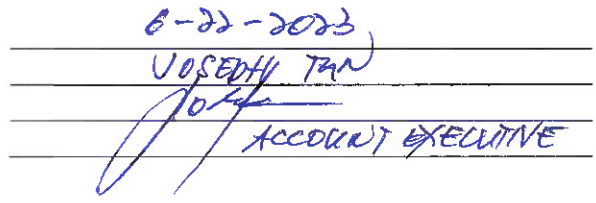 6-22-2023
JOSEPH TAN
ACCOUNT EXECUTIVE